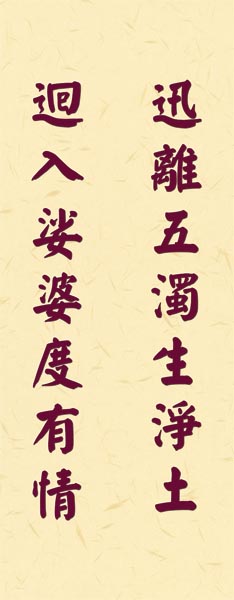 迅離五濁生淨土
迴入娑婆度有情